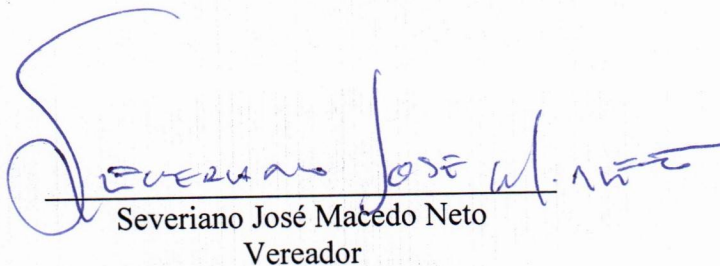 Severiano José M. Neto
Severiano José Macedo Neto
Vereador